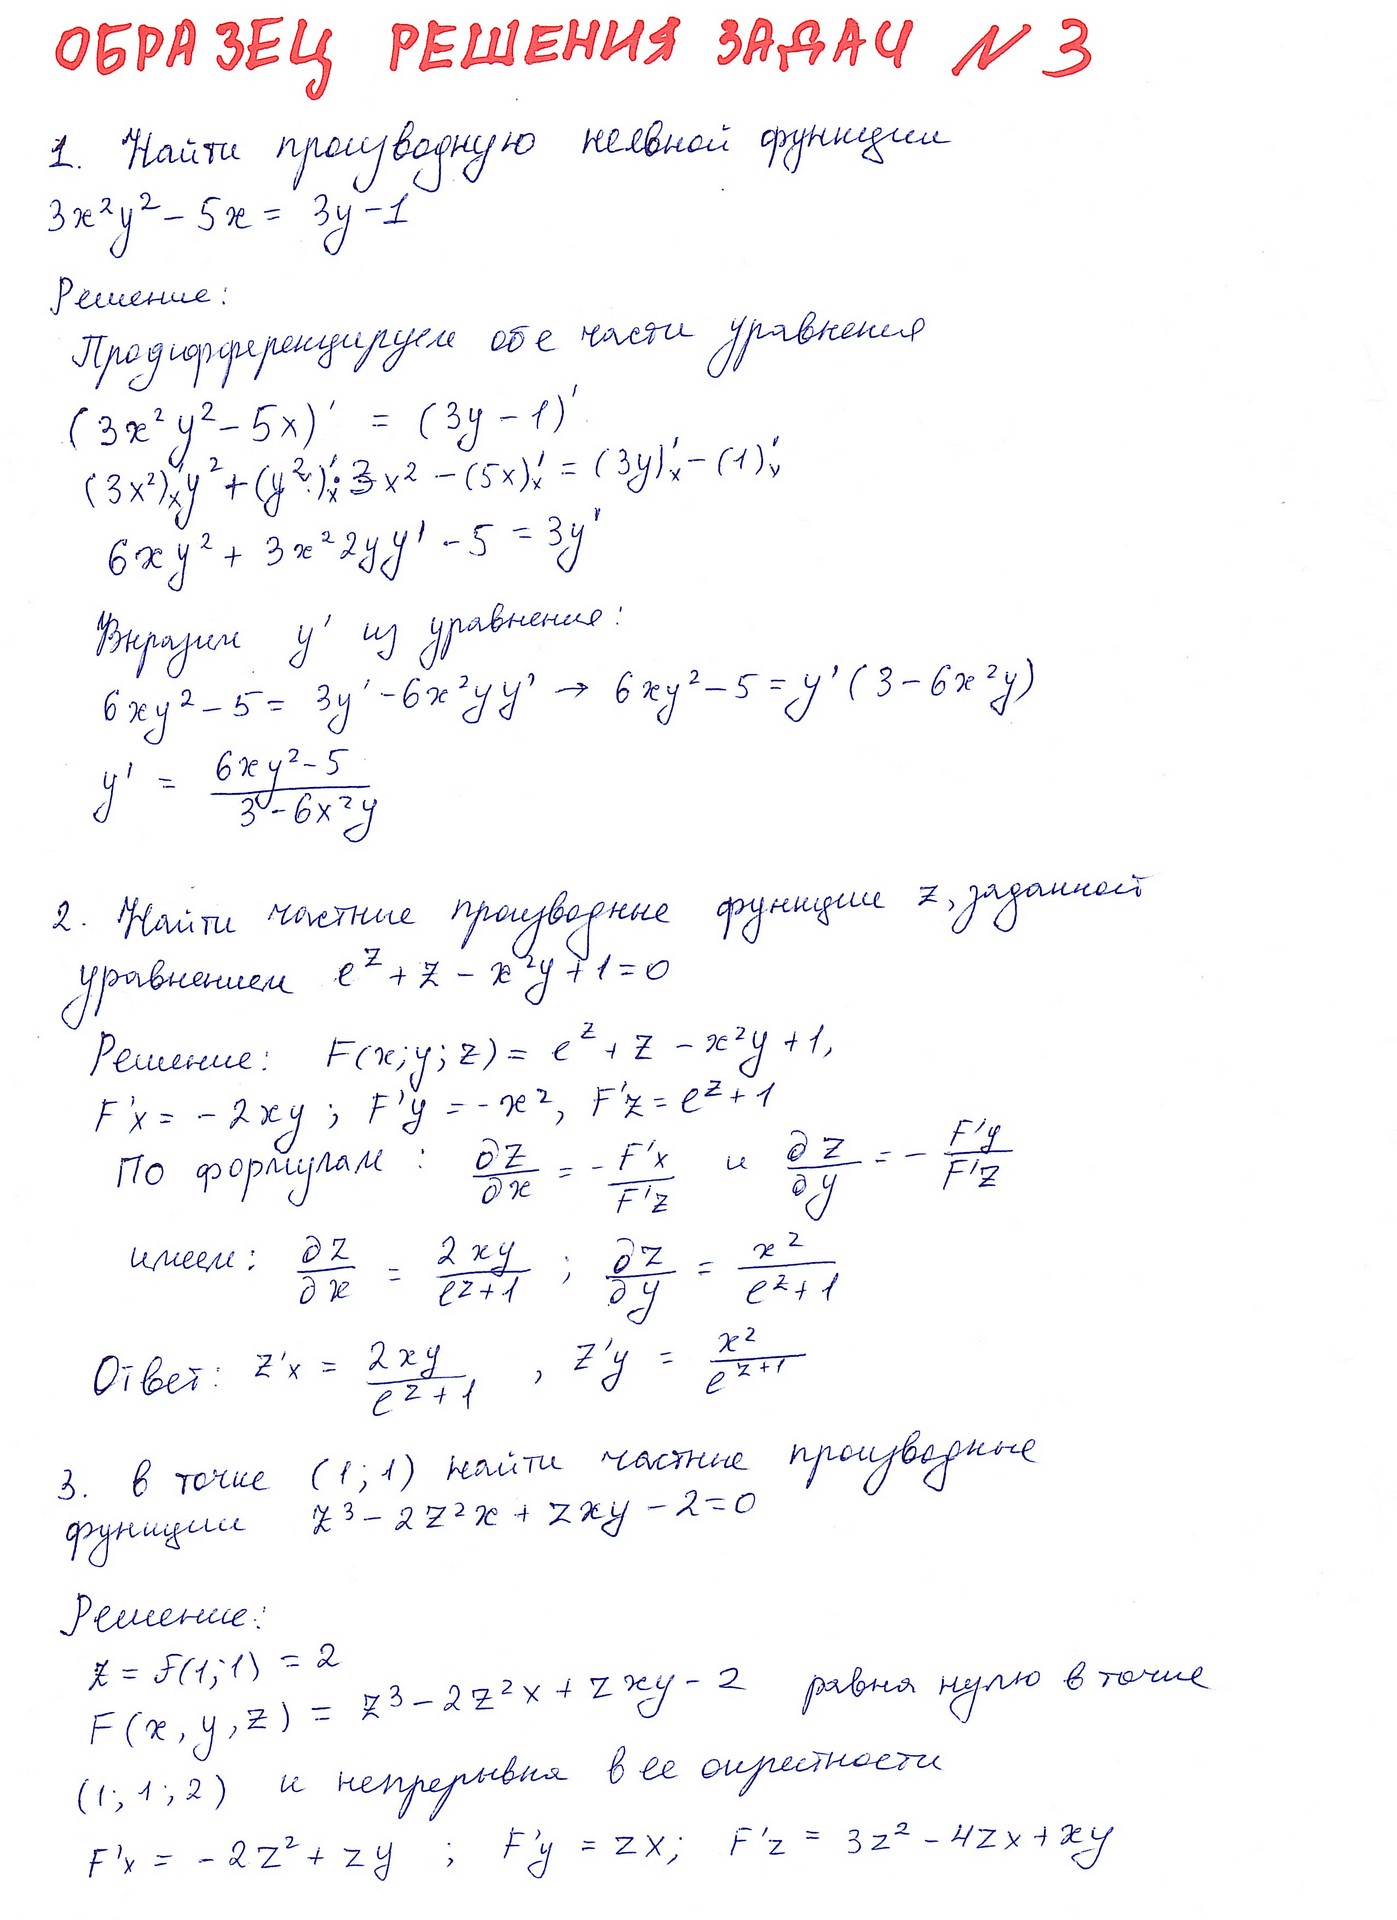 ОБРАЗЕЦ РЕШЕНИЯ ЗАДАЧ N 3
1. Найти производную неявной функции
3x²y² - 5x = 3y - 1
Решение:
Продифференцируем обе части уравнения
(3x²y² - 5x)' = (3y - 1)'
(3x²)'ₓy² + (y²)'ₓ·3x² - (5x)'ₓ = (3y)'ₓ - (1)'ₓ
6xy² + 3x²2yy' - 5 = 3y'
Выразим y' из уравнения:
6xy² - 5 = 3y' - 6x²yy' → 6xy² - 5 = y'(3 - 6x²y)
y' = \frac{6xy² - 5}{3 - 6x²y}
2. Найти частные производные функции z, заданной
уравнением e^z + z - x²y + 1 = 0
Решение: F(x; y; z) = e^z + z - x²y + 1,
F'x = -2xy ; F'y = -x², F'z = e^z + 1
По формулам : \frac{∂z}{∂x} = -\frac{F'x}{F'z} и \frac{∂z}{∂y} = -\frac{F'y}{F'z}
имеем: \frac{∂z}{∂x} = \frac{2xy}{e^z + 1} ; \frac{∂z}{∂y} = \frac{x²}{e^z + 1}
Ответ: z'x = \frac{2xy}{e^z + 1} , z'y = \frac{x²}{e^{z+1}}
3. В точке (1; 1) найти частные производные
функции z³ - 2z²x + zxy - 2 = 0
Решение:
z = f(1; 1) = 2
F(x, y, z) = z³ - 2z²x + zxy - 2 равна нулю в точке
(1; 1; 2) и непрерывна в ее окрестности
F'x = -2z² + zy ; F'y = zx; F'z = 3z² - 4zx + xy